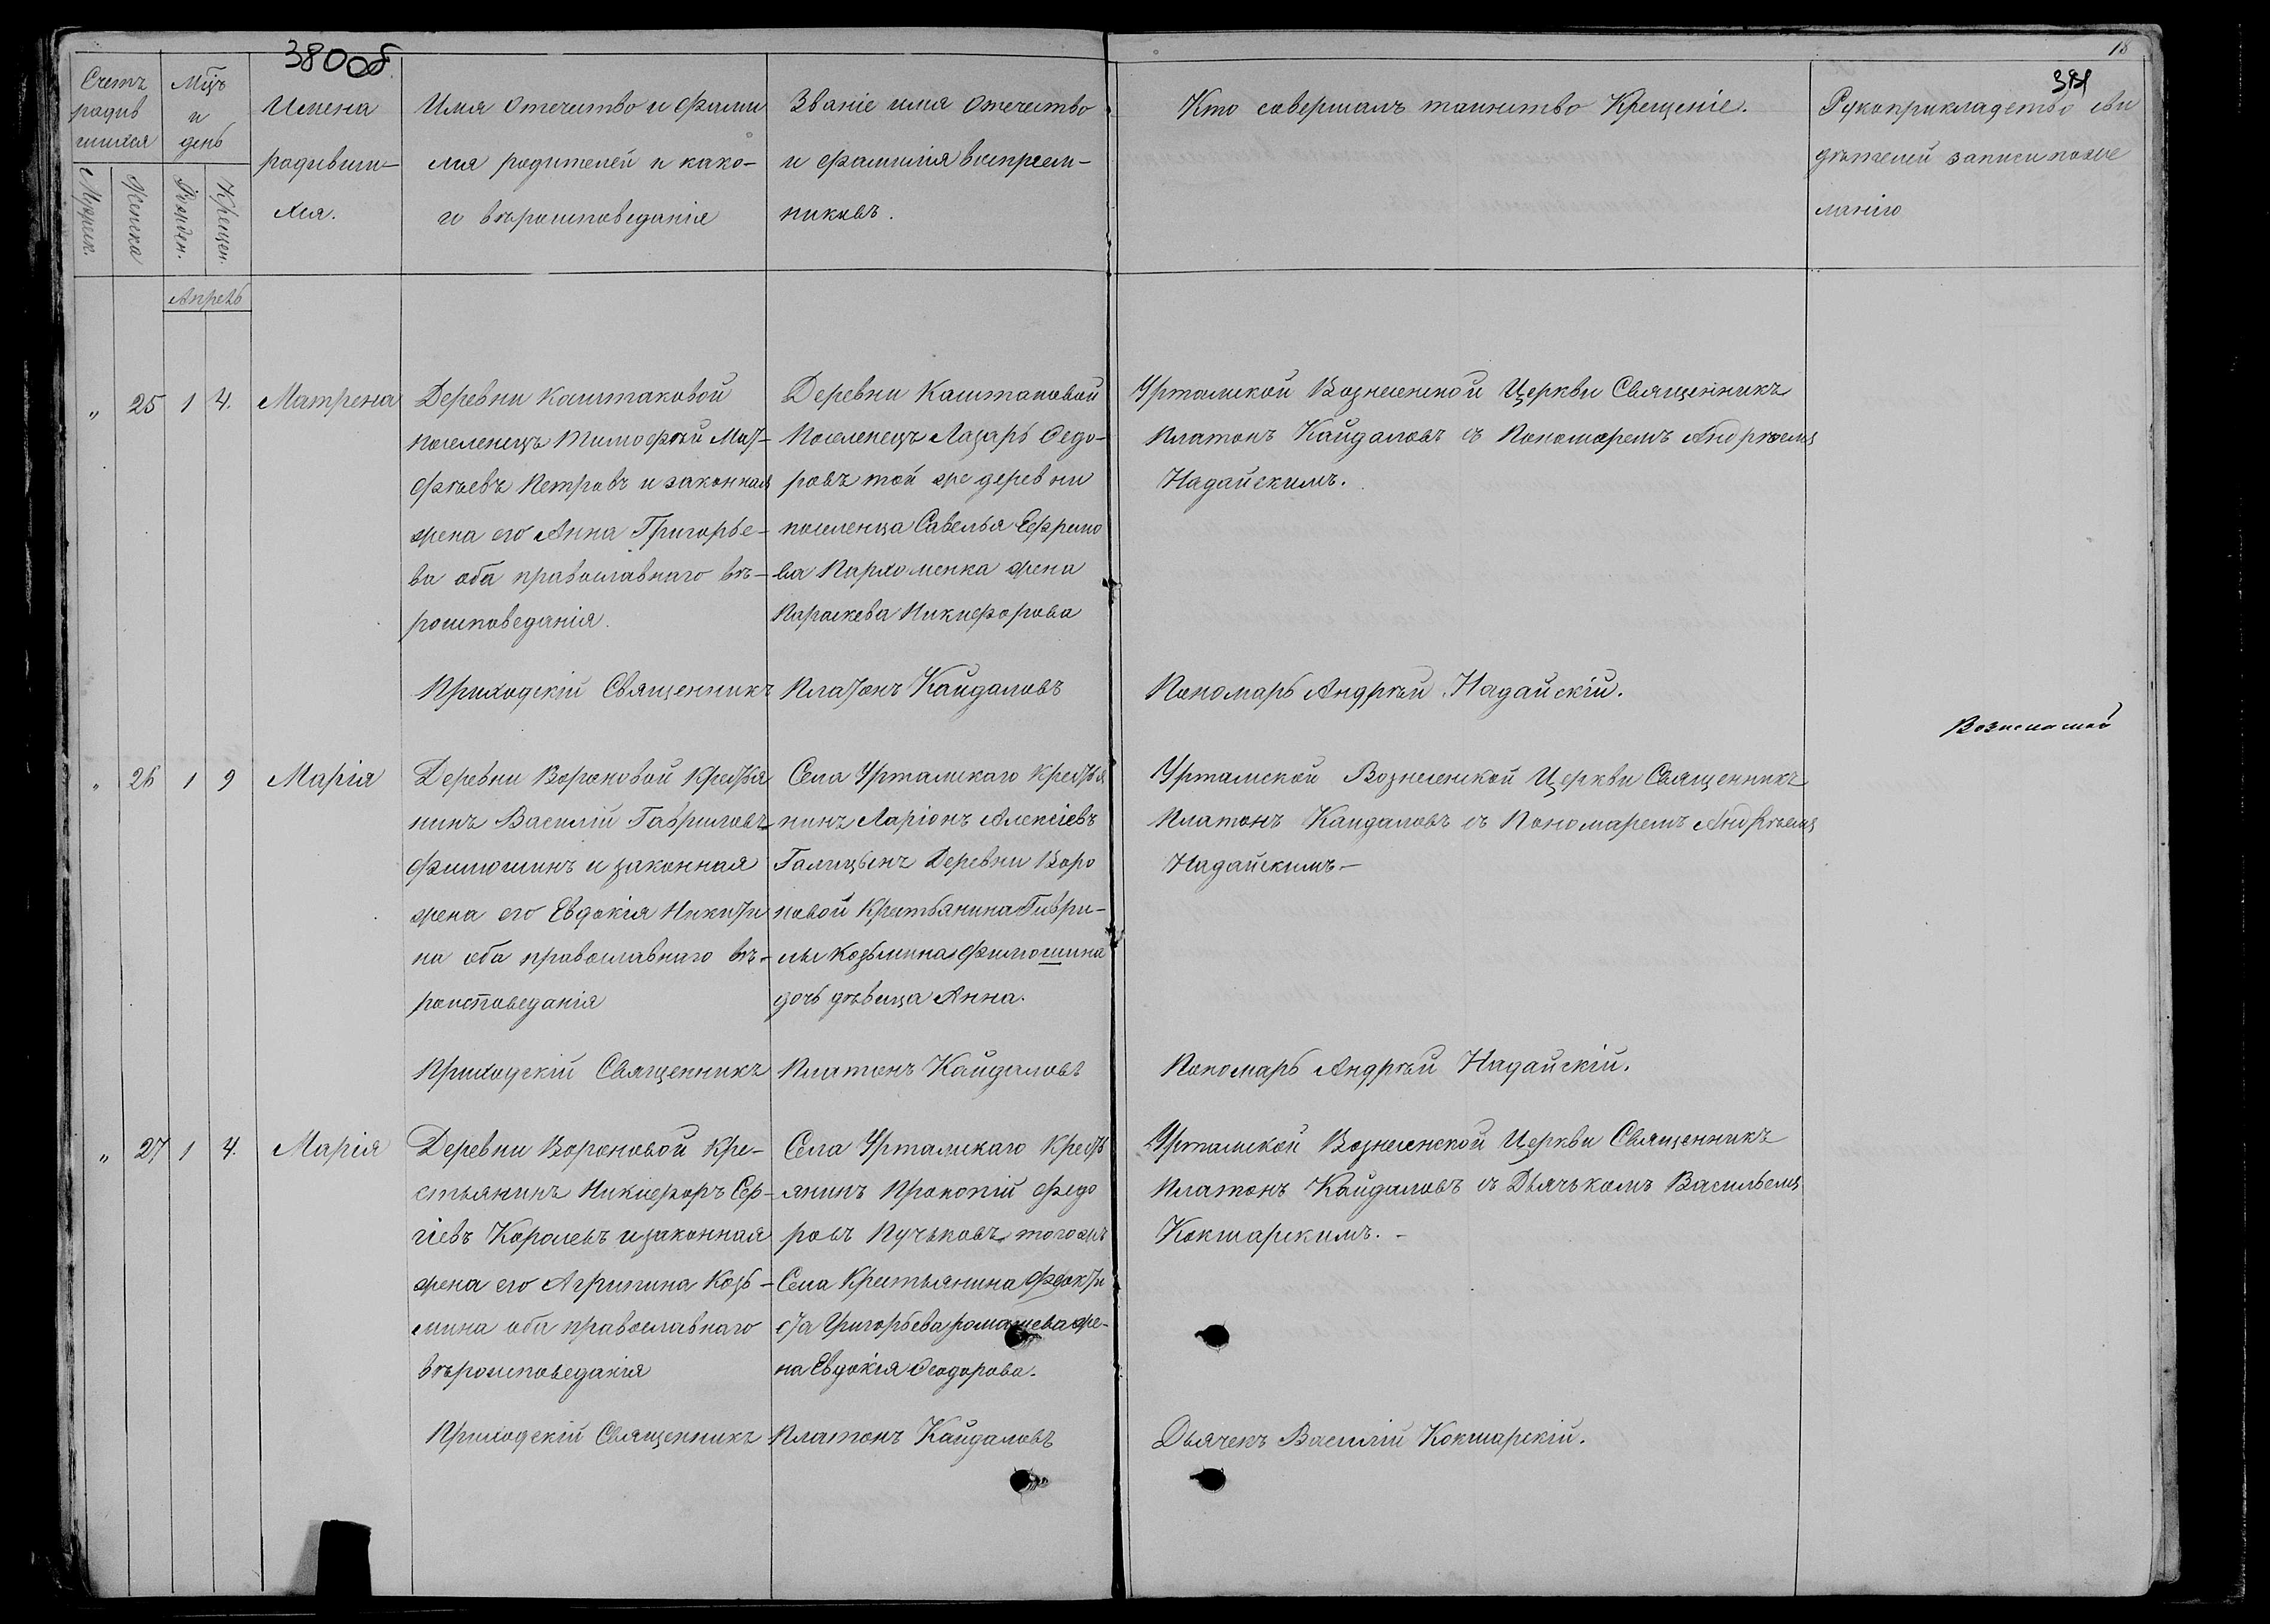 380 об
18
381
Счетъ
родив
шихся
Мужск.
Женска
Мц҃ъ
и
день
Рожден.
Крещен.
Имена
родивши-
хся.
Имя отечество и фами
лия родителей и како-
го вѣроисповеданія
Званіе имя отечество
и фамилія восприем-
никовъ.
Кто совершалъ таинство Крещеніе.
Рукоприкладство сви
дѣтелей записи по же
ланію
Апрель
" 25 1 4. Матрена
Деревни Каштаковой
поселенецъ Тимофѣй Мат-
фѣевъ Петровъ и законная
жена его Анна Григорье-
ва оба православнаго вѣ-
роисповеданія.
Деревни Каштаковой
Поселенецъ Лазарь Федо-
ровъ той же деревни
поселенца Савелья Ефремо
ва Пархоменка жена
Параскева Никифорова
Уртамской Вознесенской Церкви Священникъ
Платонъ Кайдаловъ съ Пономаремъ Андрѣемъ
Надайскимъ.
Приходскій Священникъ Платонъ Кайдаловъ
Пономарь Андрѣй Надайскій.
" 26 1 9 Марія
Деревни Вороновой Крестья
нинъ Василій Гавриловъ
Филюшинъ и законная
жена его Евдокія Никити
на оба православнаго вѣ-
роисповеданія
Села Уртамскаго Крестья
нинъ Ларіонъ Алексіевъ
Галицынъ Деревни Воро
новой Крестьянина Гаври-
лы Козьмина Филюшина
дочь дѣвица Анна.
Уртамской Вознесенской Церкви Священникъ
Платонъ Кайдаловъ съ Пономаремъ Андрѣемъ
Надайскимъ.-
Приходскій Священникъ Платонъ Кайдаловъ
Пономарь Андрѣй Надайскій.
" 27 1 4. Марія
Деревни Вороновой Кре-
стьянинъ Никифоръ Сер-
гіевъ Королевъ и законная
жена его Агрипина Козь-
мина оба православнаго
вѣроисповеданія
Села Уртамскаго Кресть
янинъ Прокопій Федо
ровъ Пучьковъ того жъ
Села Крестьянина Феокти
ста Григорьева Ромашева же-
на Евдокія Феодорова.
Уртамской Вознесенской Церкви Священникъ
Платонъ Кайдаловъ съ Дьячькомъ Васильемъ
Кокшарскимъ.-
Приходскій Священникъ Платонъ Кайдаловъ
Дьячекъ Василій Кокшарскій.